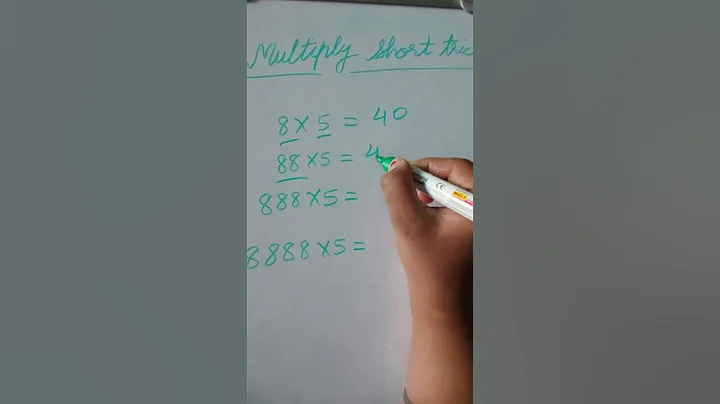 Multiply Short tric
8 × 5 = 40
88 × 5 = 4
888 × 5 =
8888 × 5 =